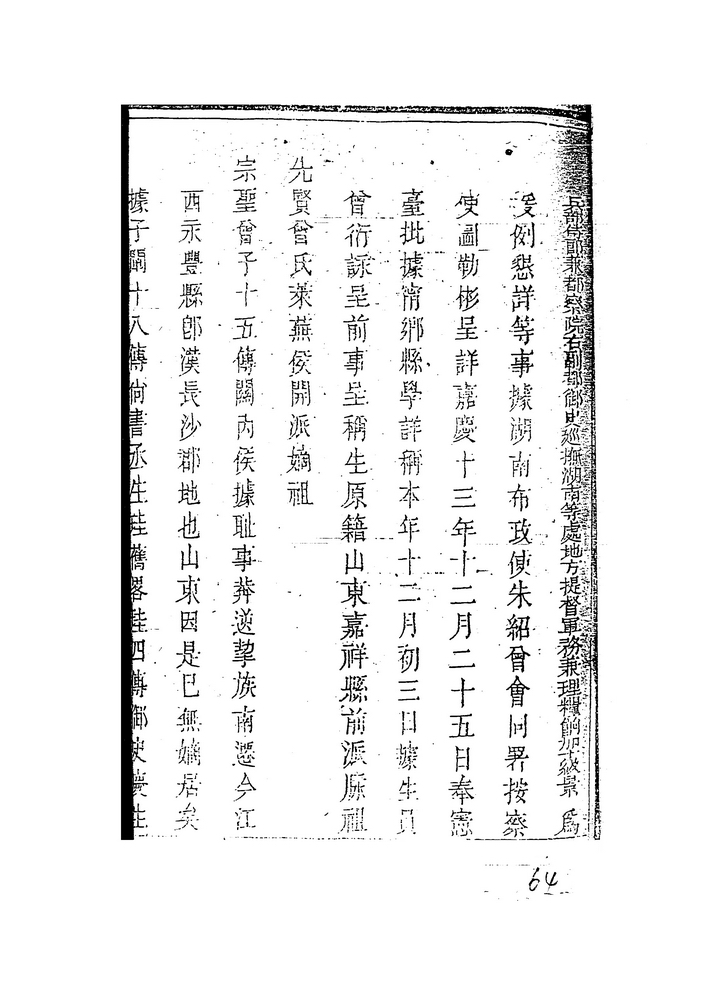 兵部侍郎兼都察院右副都御史巡撫湖南等處地方提督軍務兼理糧餉加一級景 爲
援例懇詳等事據湖南布政使朱紹曾會同署按察
使圖勒彬呈詳嘉慶十三年十二月二十五日奉憲
臺批據甯鄉縣學詳稱本年十二月初三日據生員
曾衍詠呈前事呈稱生原籍山東嘉祥縣前派厤祖
先賢曾氏萊蕪侯開派嫡祖
宗聖曾子十五傳關內侯據耻事莽逆挈族南遷今江
西永豐縣卽漢長沙郡地也山東因是已無嫡居矣
據子闡十八傳尙書丞生珪舊畧珪四傳御史慶生
64